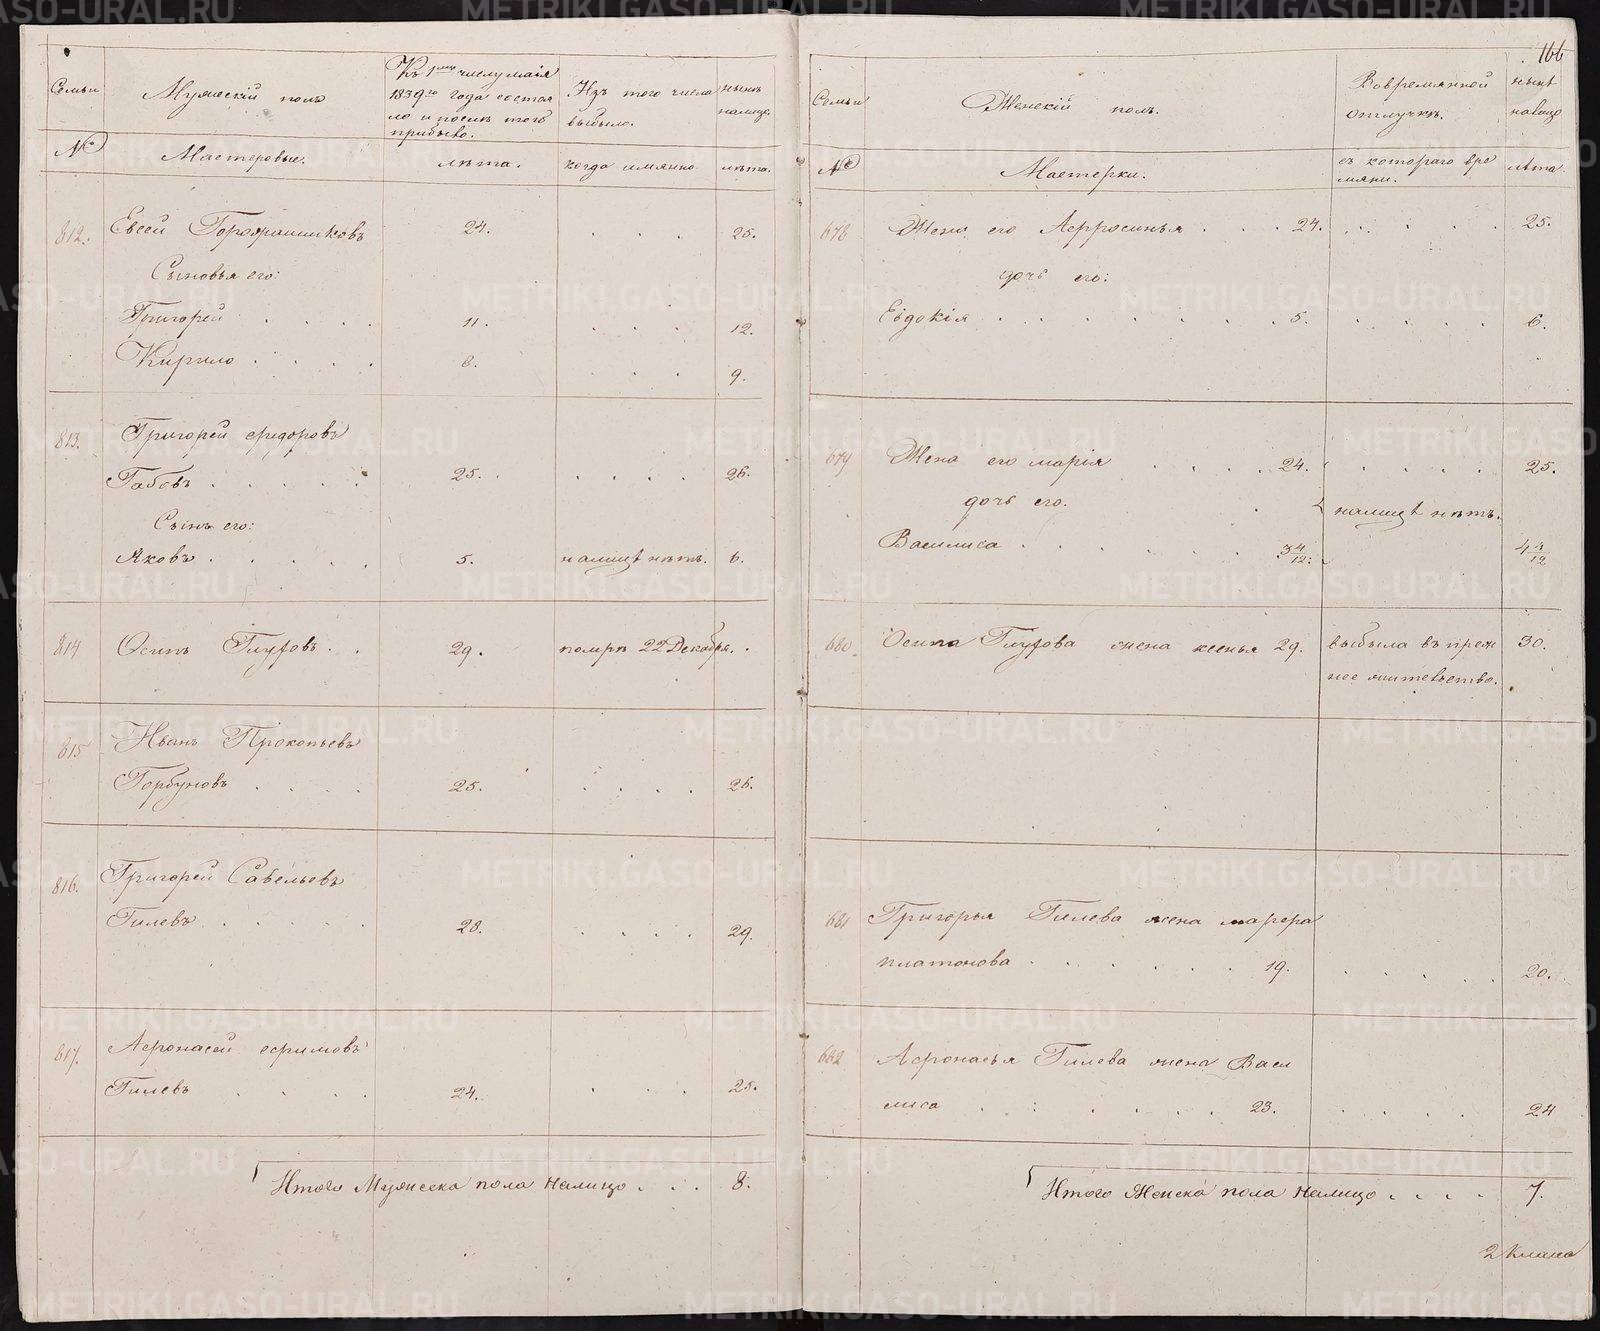 Семьи
Мужескій полъ
Къ 1му числу маія
1839го года состоя
ло и после того
прибыло.
Изъ того числа
выбыло.
нынѣ
налицо.
№
Мастеровые.
лѣта.
когда имянно
лѣта.
812.
Евсей
24.
25.
Сыновья его:
Григорей
11.
12.
Кирило
8.
9.
813.
Григорей Федоровъ
Габовъ
25.
26.
Сынъ его:
Яковъ
5.
налицѣ нѣтъ.
6.
814
Осипъ
29.
помръ 22 Декабря.
815
Иванъ Прокопьевъ
Горбуновъ
25.
26.
816.
Григорей Савельевъ
Гилевъ
28.
29.
817.
Афонасей ефимовъ
Гилевъ
24.
25.
Итого Мужеска пола налицо
8.
166
Семьи
Женскій полъ.
Вовремянной
отлучкѣ.
нынѣ
налицо
№
Мастерки.
съ котораго вре
мяни.
лѣта
678
Жена его Афросинья
24.
25.
дочь его:
Евдокія
5.
6.
679
Жена его марія
24.
25.
дочь его.
налицѣ нѣтъ.
Василиса
3 4/12.
4 4/12
680
Осипа
жена ксенья 29.
выбыла въ преж
30.
нее жительство.
681
Григорья Гилева жена марфа
платонова
19.
20.
682
Афонасья Гилева жена Васи
лиса
23.
24
Итого Женска пола налицо
7.
METRIKI.GASO-URAL.RU